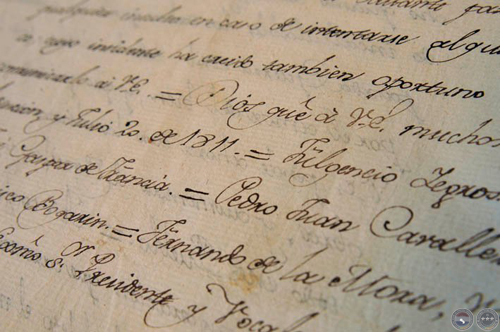 qualquier insulto en caso de intentarse alguna
a cuyo incidente ha creido tambien oportuno
comunicarlo á V.E. = Dios gue. á V.E. muchos
y Julio 20. de 1811 = Fulgencio Yegros
Gaspar de Francia. = Pedro Juan Cavalle
Bogarin. = Fernando de la Mora, V
S.r Presidente y Vocal